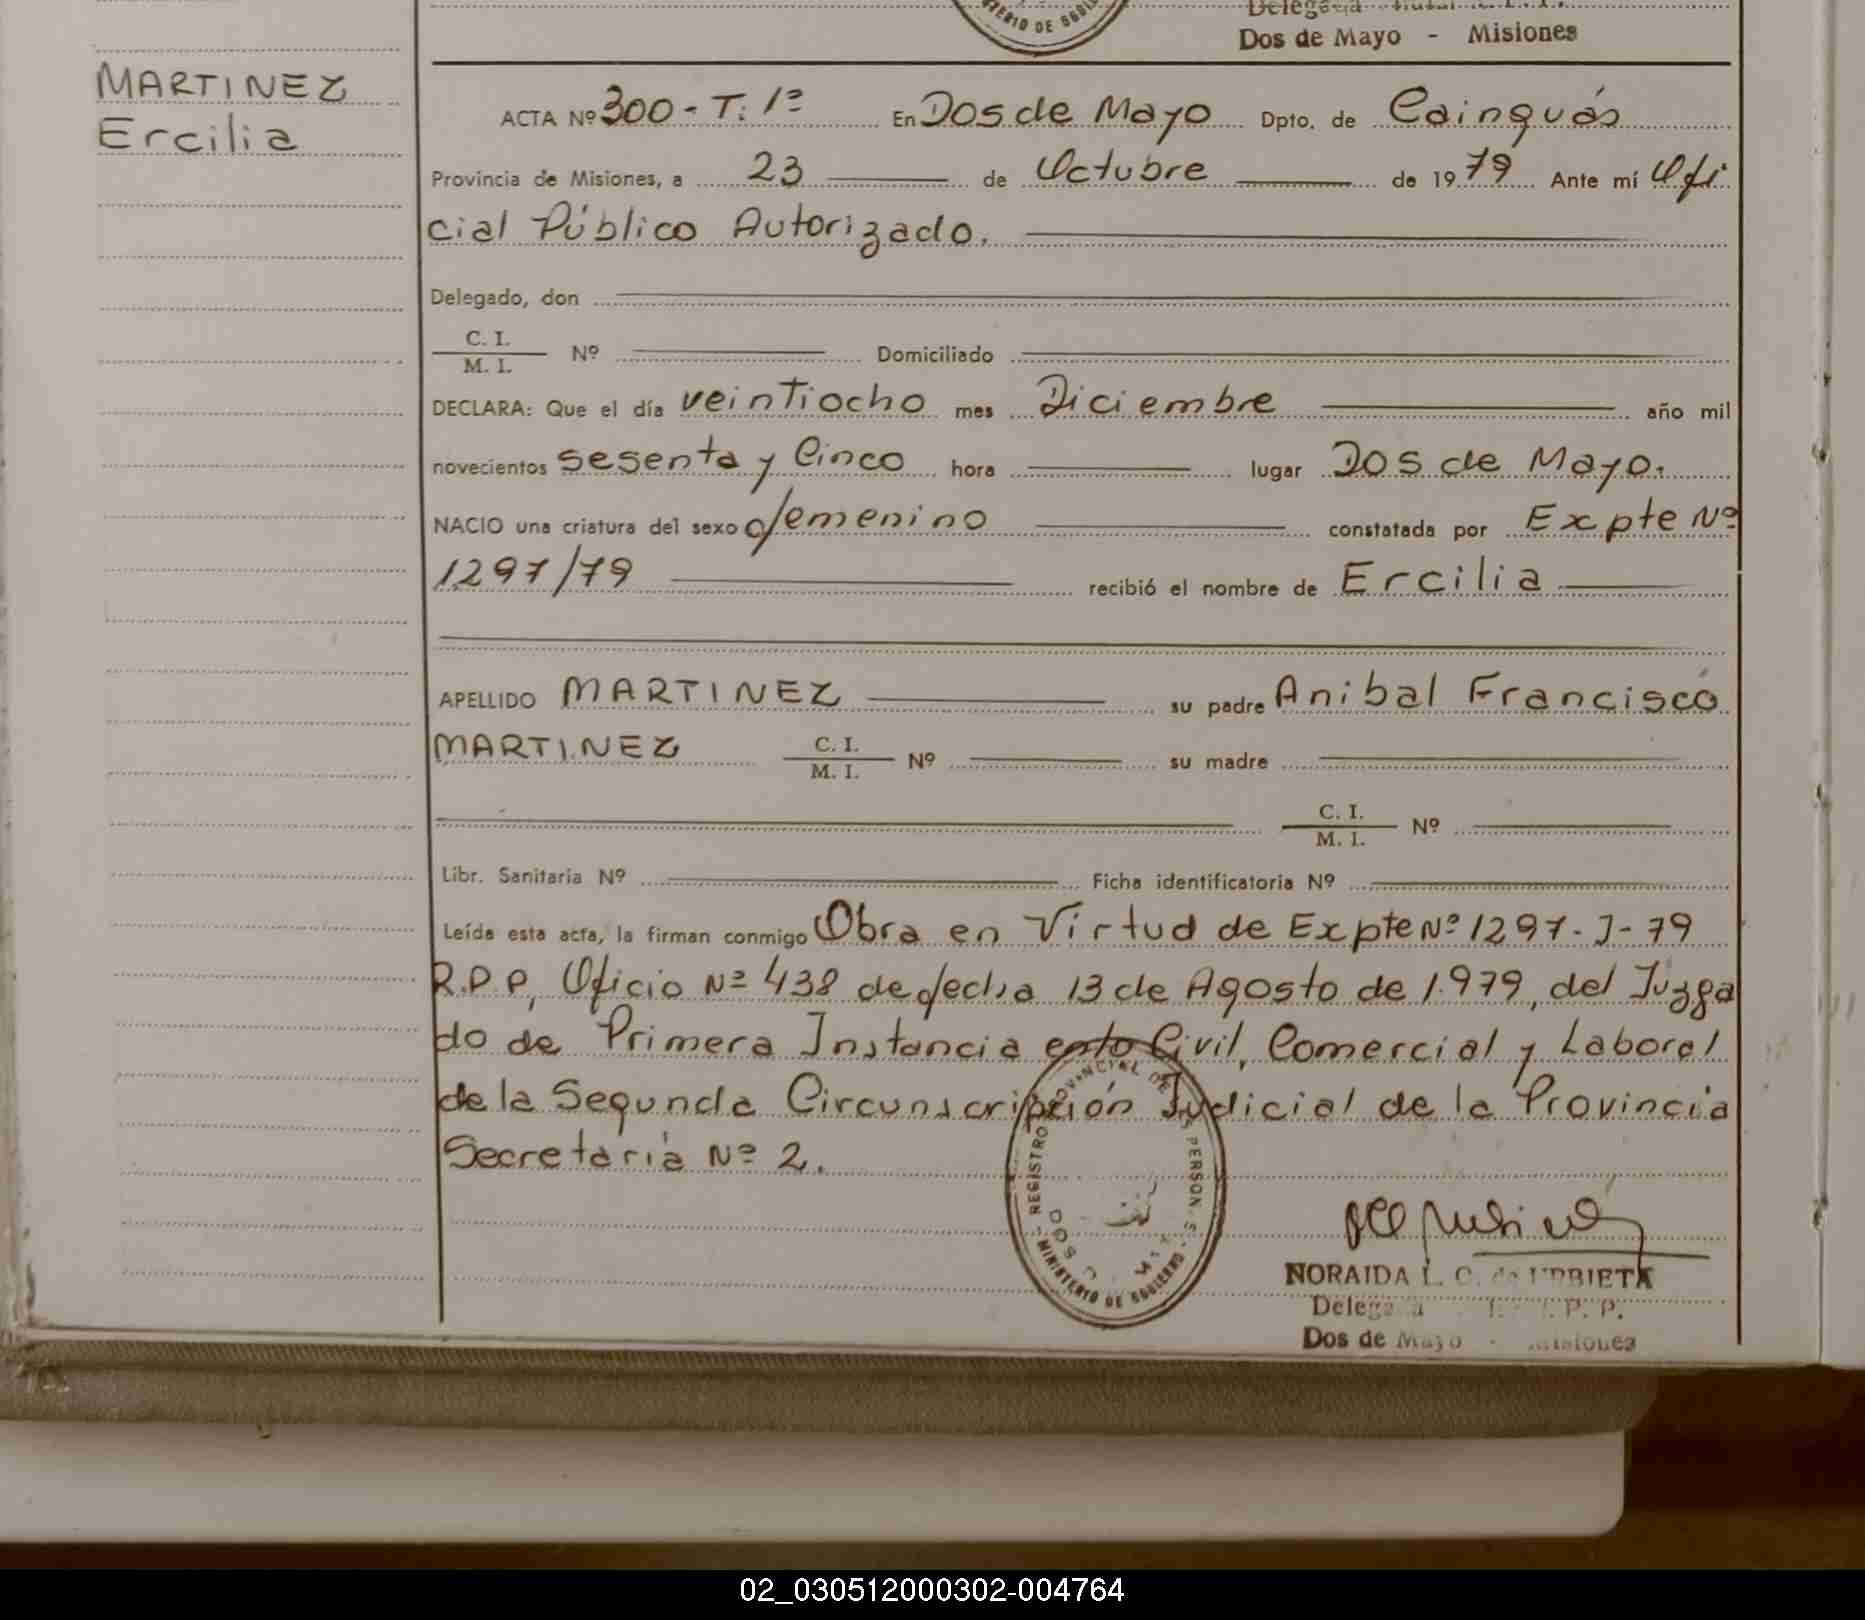 Dos de Mayo - Misiones
MARTINEZ
Ercilia
ACTA Nº 300 - T: 1º En Dos de Mayo Dpto. de Cainguás
Provincia de Misiones, a 23 de Octubre de 1979 Ante mí Ofi
cial Público Autorizado.
Delegado, don
C. I.
M. I. Nº Domiciliado
DECLARA: Que el día veintiocho mes Diciembre año mil
novecientos sesenta y Cinco hora lugar Dos de Mayo.
NACIO una criatura del sexo femenino constatada por Expte Nº
1297/79 recibió el nombre de Ercilia
APELLIDO MARTINEZ su padre Anibal Francisco
MARTINEZ C. I. M. I. Nº su madre
C. I. M. I. Nº
Libr. Sanitaria Nº Ficha identificatoria Nº
Leída esta acta, la firman conmigo Obra en Virtud de Expte Nº 1297-J-79
R.P.P, Oficio Nº 438 de fecha 13 de Agosto de 1.979, del Juzga
do de Primera Instancia en lo Civil, Comercial y Laboral
de la Segunda Circunscripción Judicial de la Provincia
Secretaria Nº 2.
REGISTRO PROVINCIAL DE PERSON S
MINISTERIO DE GOBIERNO
NORAIDA L. C. de URBIETA
P. P.
Dos de Mayo - Misiones
02_030512000302-004764